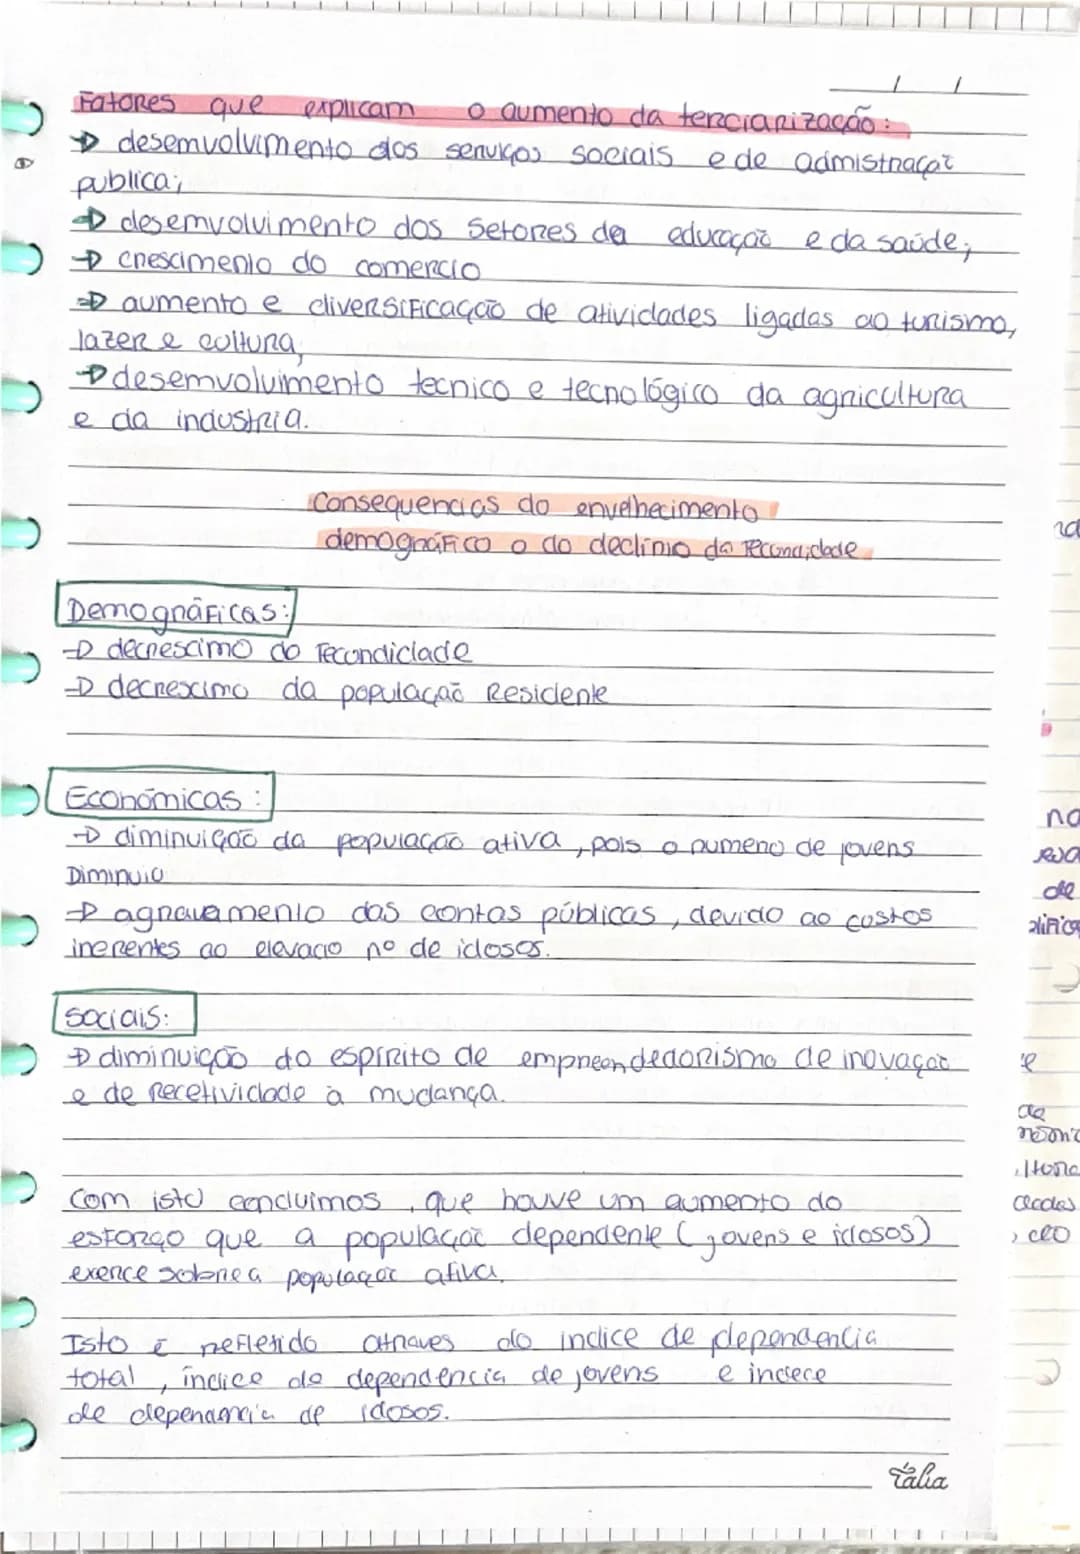 Fatores que explicam o aumento da terciarização:
→ desemvolvimento dos serviços sociais e de admistraçaõ
publica;
→ desemvolvimento dos Setores da educação e da saúde;
→ crescimento do comercio
→ aumento e diversificação de atividades ligadas ao turismo,
lazer e cultura;
→ desemvoluimento tecnico e tecnológico da agricultura
e da industria.
Consequencias do envelhecimento
demográfico e do declinio da fecundidade
Demográficas:
→ decrescimo da fecondidade
→ decrescimo da população Residente
Económicas:
→ diminuição da população ativa, pois o numero de jovens
Diminuiu
→ agravamento das contas públicas, devido ao custos
inerentes ao elevado nº de idosos.
sociais:
→ diminuição do espírito de empreendedorismo de inovação
e de recetividade à mudança.
Com isto concluimos, que houve um aumento do
esforço que a população dependente (jovens e idosos)
exerce sobre a população ativa.
Isto é refletido atraves do indice de dependencia
total, índice de dependência de jovens e indece
de dependencia de idosos.
Tália